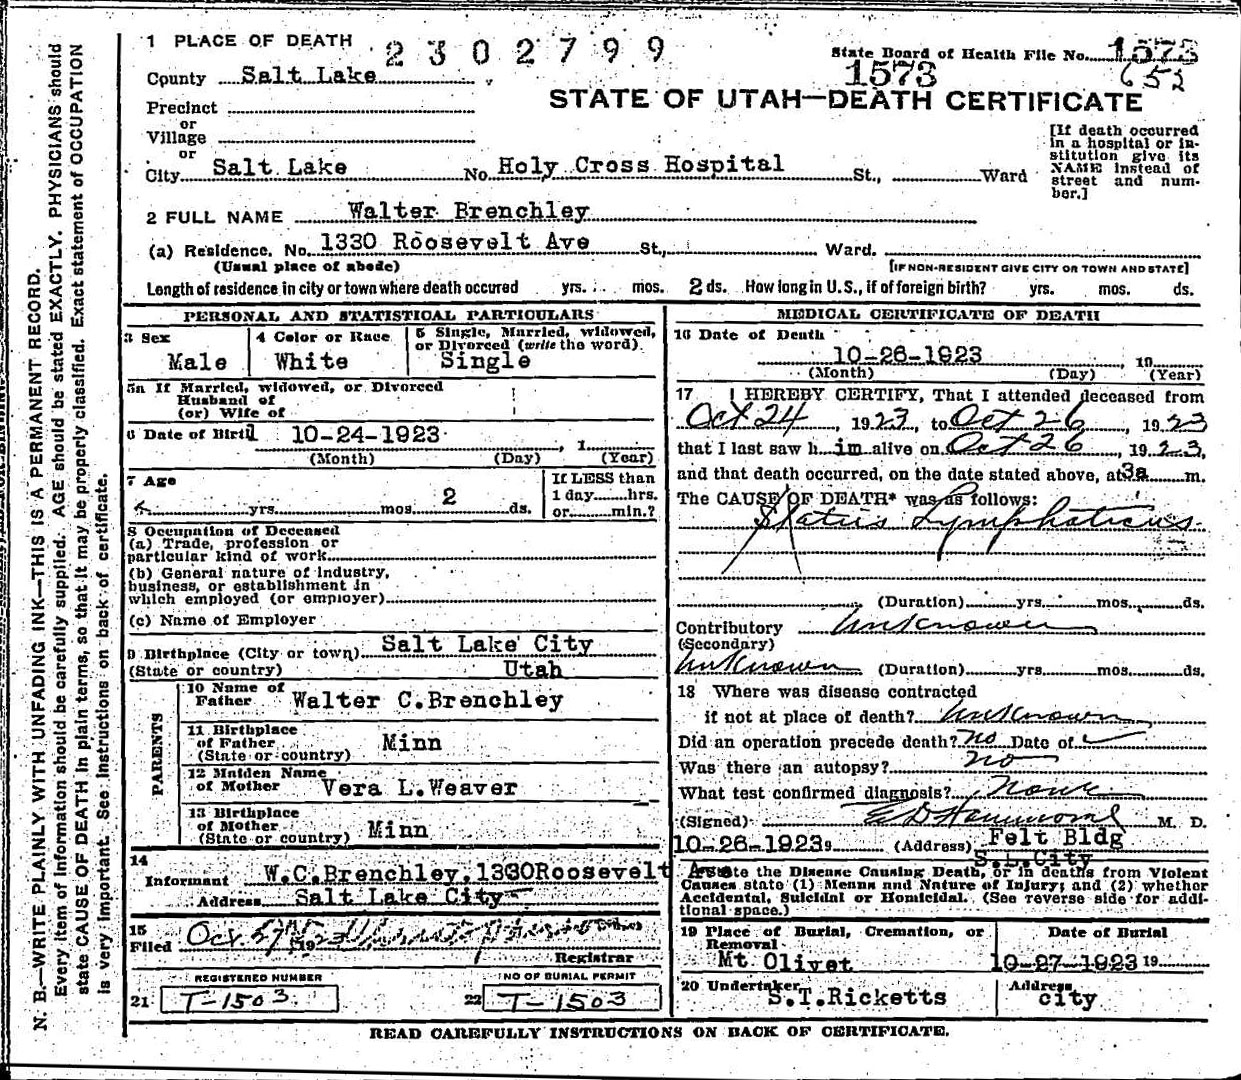 1 PLACE OF DEATH 2302799
State Board of Health File No. 1573
County Salt Lake 1573 652
STATE OF UTAH—DEATH CERTIFICATE
Precinct
or
Village
or
City Salt Lake No. Holy Cross Hospital St., Ward
[If death occurred
in a hospital or in-
stitution give its
NAME instead of
street and num-
ber.]
2 FULL NAME Walter Brenchley
(a) Residence. No. 1330 Roosevelt Ave St., Ward.
(Usual place of abode) [IF NON-RESIDENT GIVE CITY OR TOWN AND STATE]
Length of residence in city or town where death occured yrs. mos. 2 ds. How long in U.S., if of foreign birth? yrs. mos. ds.
PERSONAL AND STATISTICAL PARTICULARS
3 Sex
Male
4 Color or Race
White
5 Single, Married, widowed,
or Divorced (write the word).
Single
5a If Married, widowed, or Divorced
Husband of
(or) Wife of
6 Date of Birth 10-24-1923 , 1
(Month) (Day) (Year)
7 Age
yrs. mos. 2 ds.
If LESS than
1 day hrs.
or min.?
8 Occupation of Deceased
(a) Trade, profession or
particular kind of work
(b) General nature of industry,
business, or establishment in
which employed (or employer)
(c) Name of Employer
9 Birthplace (City or town) Salt Lake City
(State or country) Utah
PARENTS
10 Name of
Father Walter C.Brenchley
11 Birthplace
of Father Minn
(State or country)
12 Maiden Name
of Mother Vera L.Weaver
13 Birthplace
of Mother Minn
(State or country)
14
Informant W.C.Brenchley,1330Roosevelt
Address Salt Lake City
15
Filed Oct. 27 192
Registrar
REGISTERED NUMBER
21 T-1503
NO OF BURIAL PERMIT
22 T-1503
MEDICAL CERTIFICATE OF DEATH
16 Date of Death
10-26-1923 19
(Month) (Day) (Year)
17 I HEREBY CERTIFY, That I attended deceased from
Oct 24, 1923, to Oct 26, 1923
that I last saw him alive on Oct 26, 1923,
and that death occurred, on the date stated above, at 3a m.
The CAUSE OF DEATH* was as follows:
Status Lymphaticus
(Duration) yrs. mos. ds.
Contributory Unknown
(Secondary)
Unknown (Duration) yrs. mos. ds.
18 Where was disease contracted
if not at place of death? Unknown
Did an operation precede death? No Date of
Was there an autopsy? No
What test confirmed diagnosis? None
(Signed) E D Hammond M. D.
10-26-1923 9 (Address) Felt Bldg
S.L.City
State the Disease Causing Death, or in deaths from Violent
Causes state (1) Means and Nature of Injury; and (2) whether
Accidental, Suicidal or Homicidal. (See reverse side for addi-
tional space.)
19 Place of Burial, Cremation, or
Removal
Mt Olivet
Date of Burial
10-27-1923 19
20 Undertaker
S.T.Ricketts
Address
city
READ CAREFULLY INSTRUCTIONS ON BACK OF CERTIFICATE.
N. B.—WRITE PLAINLY WITH UNFADING INK—THIS IS A PERMANENT RECORD.
Every item of information should be carefully supplied. AGE should be stated EXACTLY. PHYSICIANS should
state CAUSE OF DEATH in plain terms, so that it may be properly classified. Exact statement of OCCUPATION
is very important. See Instructions on back of certificate.